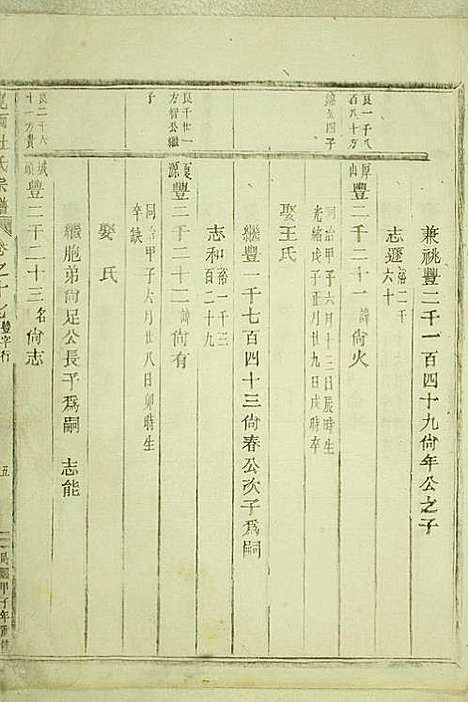 兼祧豐二千一百四十九尙年公之子
志遜 裕二千六十
良一千八百八十方
公四子
厚山 豐二千二十一 諱尙火
同治甲子六月十三日辰時生
光緖戊子正月廿九日戌時卒
娶王氏
繼豐一千七百四十三尙春公次子爲嗣
志和 裕一千三百二十九
良千廿一方智公繼子
夏源 豐二千二十二 諱尙有
同治甲子六月廿八日卯時生
卒缺
娶 氏
良二千八十方貴
城頭 豐二千二十三 名尙志
繼胞弟尙足公長子爲嗣 志能
杜氏宗譜 卷之十七 豐字行 五 民國甲子年重修